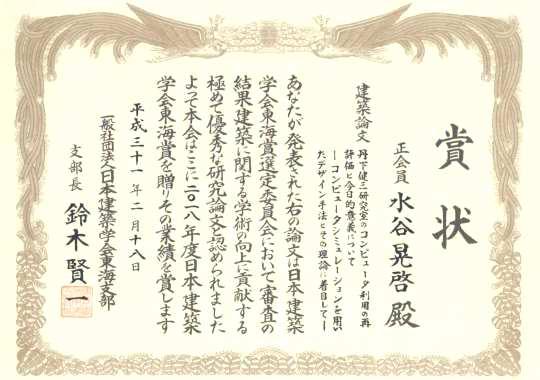 賞状
正会員 水谷晃啓 殿
建築論文 丹下健三研究室のコンピュータ利用の再
評価と今日的意義について
―コンピュータシミュレーションを用い
たデザイン手法とその理論に着目して―
あなたが発表された右の論文は日本建築
学会東海賞選定委員会において審査の
結果建築に関する学術の向上に貢献する
極めて優秀な研究論文と認められました
よって本会はここに二〇一八年度日本建築
学会東海賞を贈りその業績を賞します
平成三十一年二月十八日
一般社団法人日本建築学会東海支部
支部長 鈴木賢一